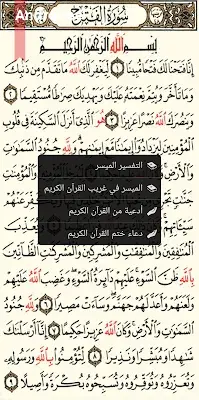 سُورَةُ الْفَتْحِ
بِسْمِ اللَّهِ الرَّحْمَٰنِ الرَّحِيمِ
إِنَّا فَتَحْنَا لَكَ فَتْحًا مُّبِينًا ١ لِّيَغْفِرَ لَكَ اللَّهُ مَا تَقَدَّمَ مِن ذَنبِكَ
وَمَا تَأَخَّرَ وَيُتِمَّ نِعْمَتَهُ عَلَيْكَ وَيَهْدِيَكَ صِرَاطًا مُّسْتَقِيمًا ٢
وَيَنصُرَكَ اللَّهُ نَصْرًا عَزِيزًا ٣ هُوَ الَّذِي أَنزَلَ السَّكِينَةَ فِي قُلُوبِ
الْمُؤْمِنِينَ لِيَزْدَادُوا إِيمَانًا مَّعَ إِيمَانِهِمْ وَلِلَّهِ جُنُودُ السَّمَاوَاتِ
وَالْأَرْضِ
التفسير الميسر
الميسر في غريب القرآن الكريم
أدعية من القرآن الكريم
دعاء ختم القرآن الكريم
وَالْمُنَافِقِينَ وَالْمُنَافِقَاتِ وَالْمُشْرِكِينَ وَالْمُشْرِكَاتِ الظَّانِّينَ
بِاللَّهِ ظَنَّ السَّوْءِ عَلَيْهِمْ دَائِرَةُ السَّوْءِ وَغَضِبَ اللَّهُ عَلَيْهِمْ
وَلَعَنَهُمْ وَأَعَدَّ لَهُمْ جَهَنَّمَ وَسَاءَتْ مَصِيرًا ٦ وَلِلَّهِ جُنُودُ
السَّمَاوَاتِ وَالْأَرْضِ وَكَانَ اللَّهُ عَزِيزًا حَكِيمًا ٧ إِنَّا أَرْسَلْنَاكَ
شَاهِدًا وَمُبَشِّرًا وَنَذِيرًا ٨ لِّتُؤْمِنُوا بِاللَّهِ وَرَسُولِهِ
وَتُعَزِّرُوهُ وَتُوَقِّرُوهُ وَتُسَبِّحُوهُ بُكْرَةً وَأَصِيلًا ٩